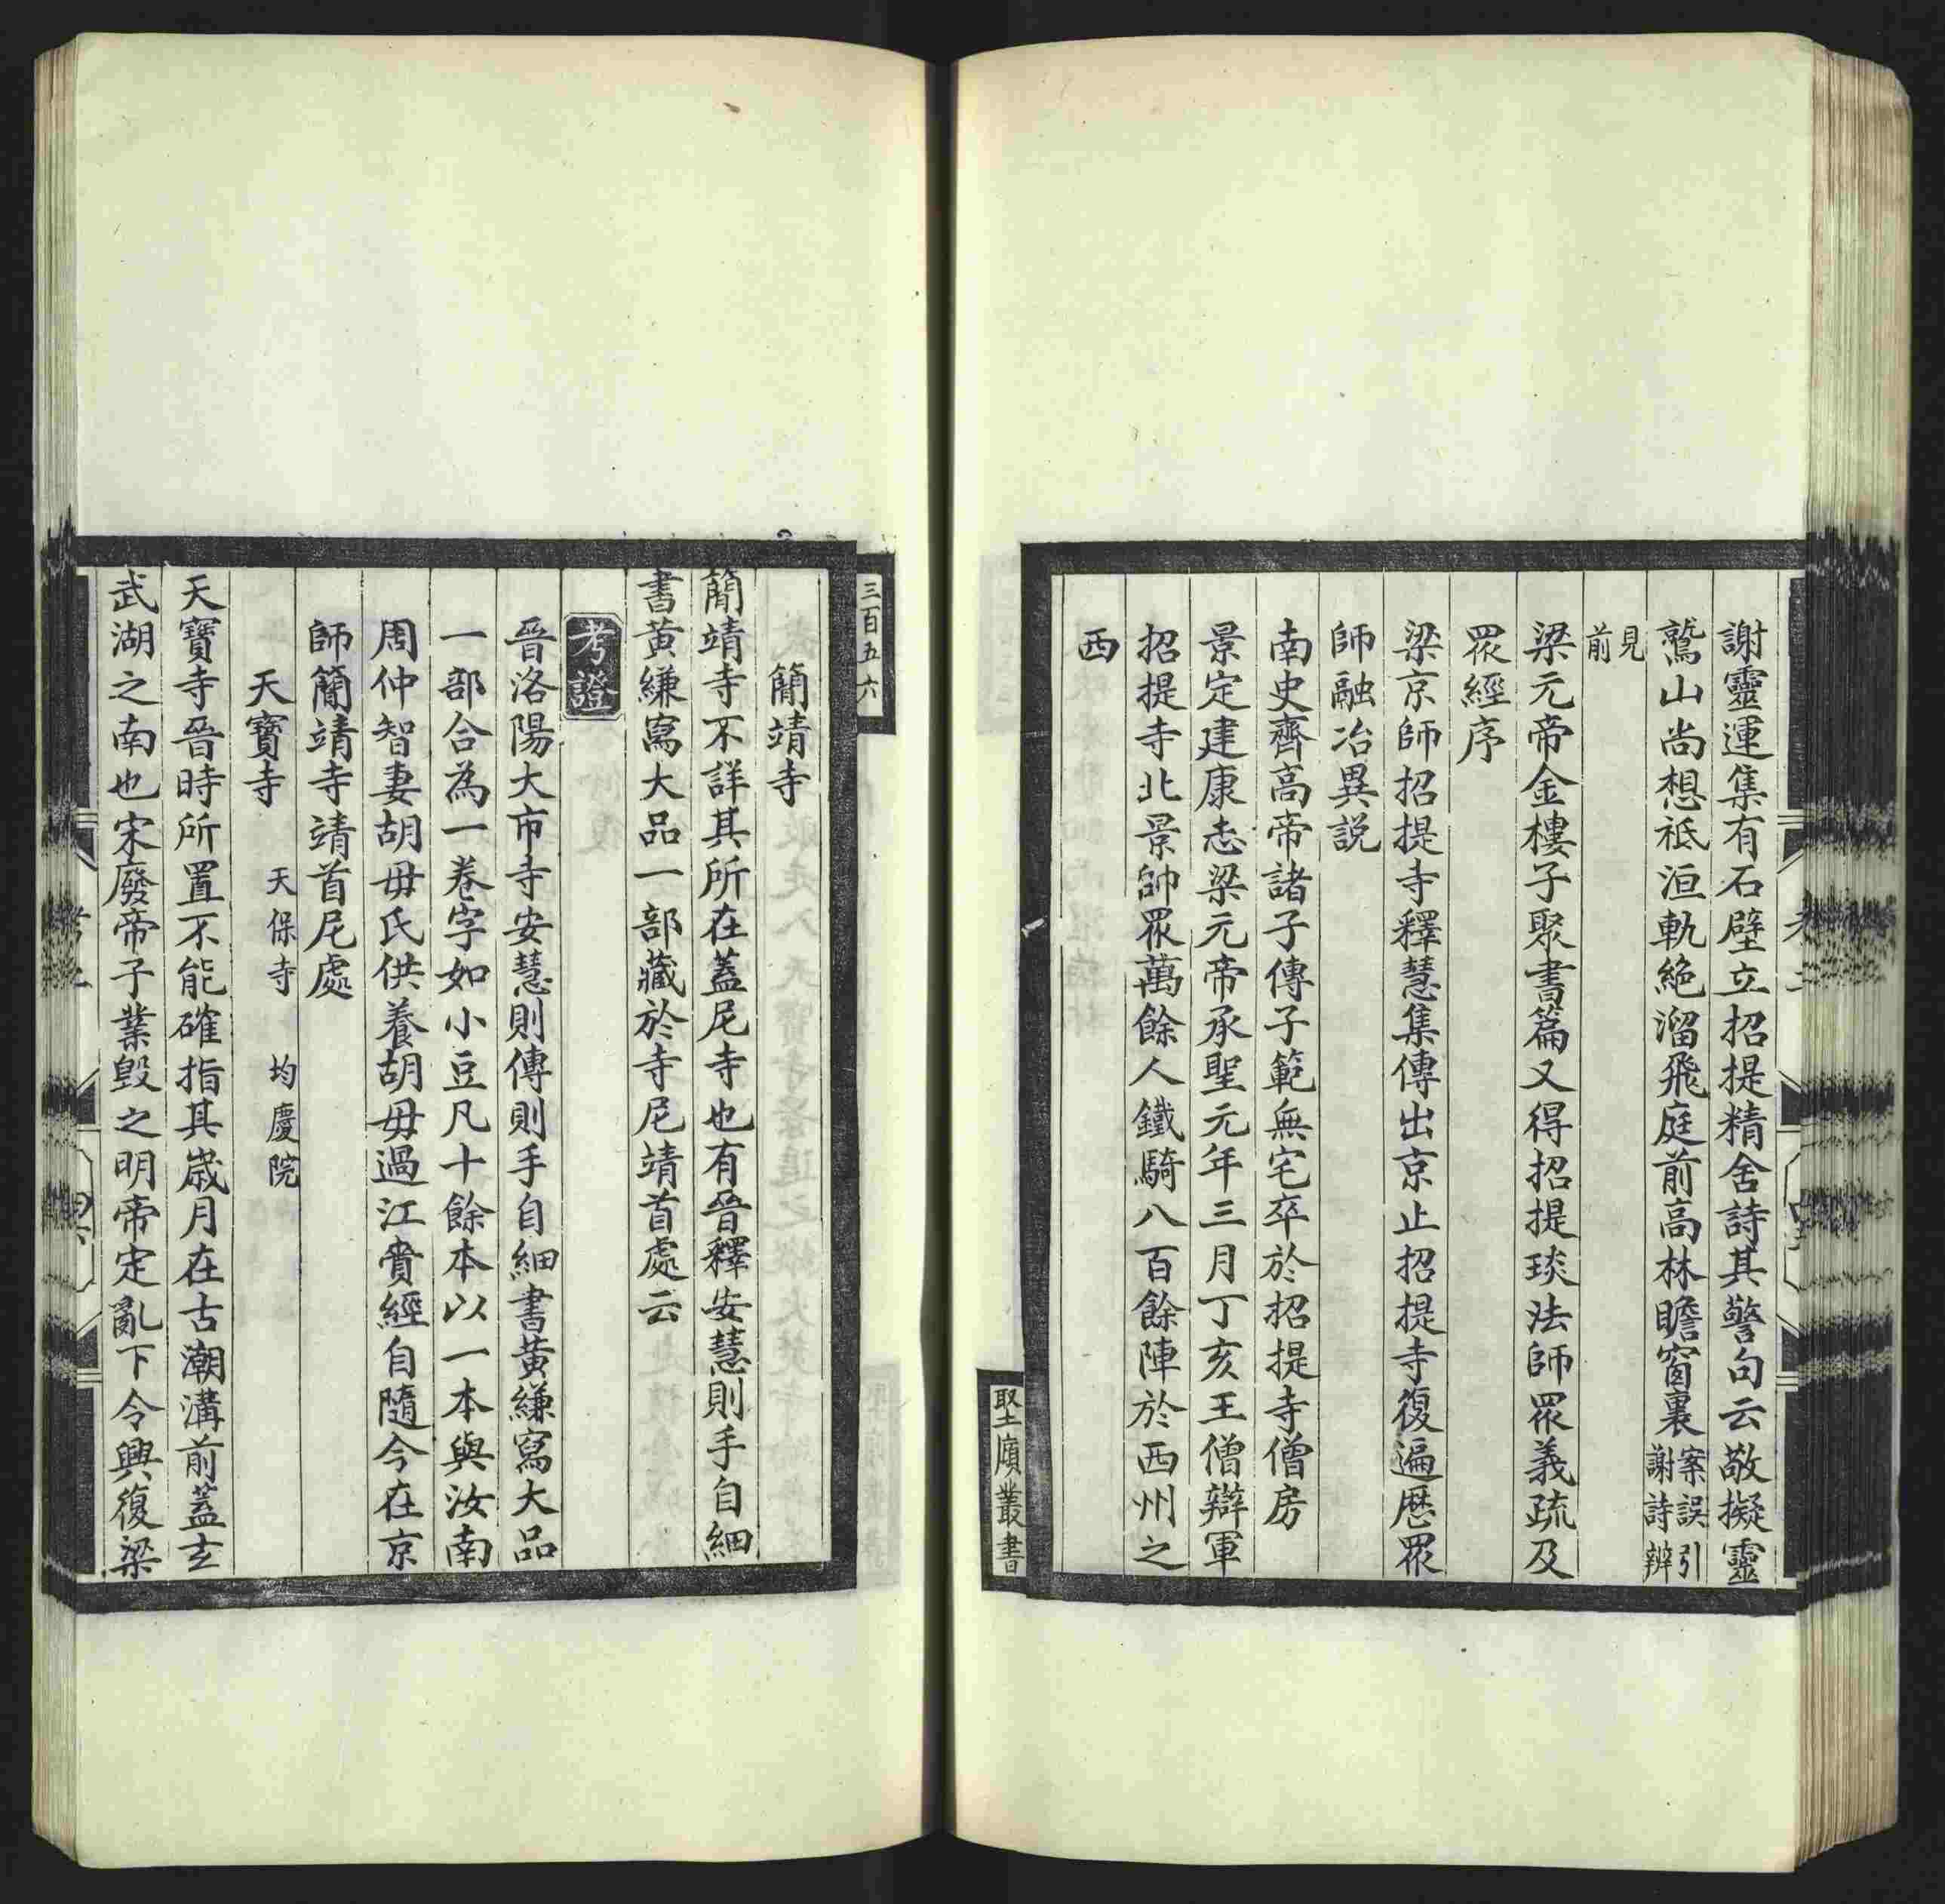 謝靈運集有石壁立招提精舍詩其警句云敬擬靈
鷲山尚想祇洹軌絶溜飛庭前高林瞻窗裏案誤引謝詩辨
見前
梁元帝金樓子聚書篇又得招提琰法師眾義疏及
眾經序
梁京師招提寺釋慧集傳出京止招提寺復遍歷眾
師融冶異説
南史齊高帝諸子傳子範無宅卒於招提寺僧房
景定建康志梁元帝承聖元年三月丁亥王僧辯軍
招提寺北景帥眾萬餘人鐵騎八百餘陣於西州之
西
聖廎叢書
三百五六
簡靖寺
簡靖寺不詳其所在蓋尼寺也有晉釋安慧則手自細
書黃縑寫大品一部藏於寺尼靖首處云
考證
晉洛陽大市寺安慧則傳則手自細書黃縑寫大品
一部合為一卷字如小豆凡十餘本以一本與汝南
周仲智妻胡毋氏供養胡毋過江賫經自隨今在京
師簡靖寺靖首尼處
天寶寺 天保寺 均慶院
天寶寺晉時所置不能確指其歲月在古潮溝前蓋玄
武湖之南也宋廢帝子業毀之明帝定亂下令興復梁